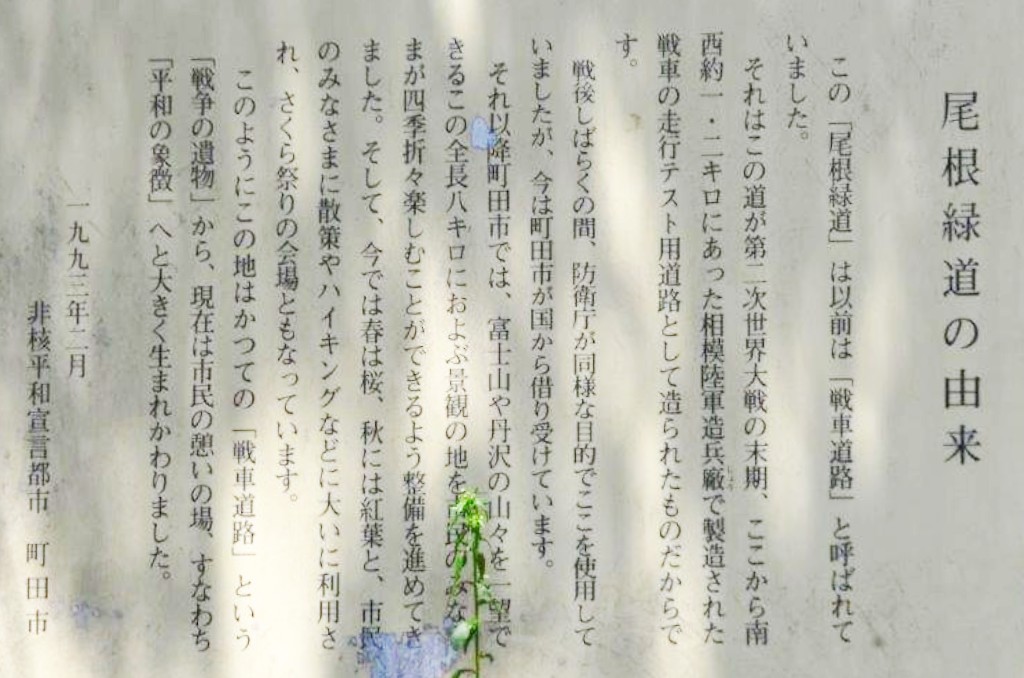 尾根緑道の由来
この「尾根緑道」は以前は「戦車道路」と呼ばれて
いました。
それはこの道が第二次世界大戦の末期、ここから南
西約一・二キロにあった相模陸軍造兵廠で製造された
戦車の走行テスト用道路として造られたものだからで
す。
戦後しばらくの間、防衛庁が同様な目的でここを使用して
いましたが、今は町田市が国から借り受けています。
それ以降町田市では、富士山や丹沢の山々を一望で
きるこの全長八キロにおよぶ景観の地を市民のみなさ
まが四季折々楽しむことができるよう整備を進めてき
ました。そして、今では春は桜、秋には紅葉と、市民
のみなさまに散策やハイキングなどに大いに利用さ
れ、さくら祭りの会場ともなっています。
このようにこの地はかつての「戦車道路」という
「戦争の遺物」から、現在は市民の憩いの場、すなわち
「平和の象徴」へと大きく生まれかわりました。
一九九三年二月
非核平和宣言都市 町田市